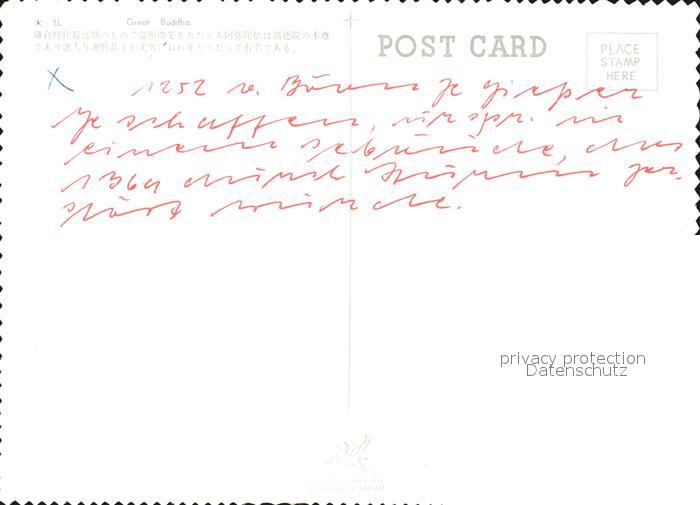 大 仏 Great Buddha.
鎌倉時代最盛期のもので温顔微笑をたたえる阿弥陀仏は高徳院の本尊
であり歌人与謝野晶子が美男におわすとうたって有名である。
POST CARD
PLACE
STAMP
HERE
1252 v.
geschaffen, urspr. in
einem Gebäude, das
1369 durch Sturm zer-
stört wurde.
privacy protection
Datenschutz
JAPAN